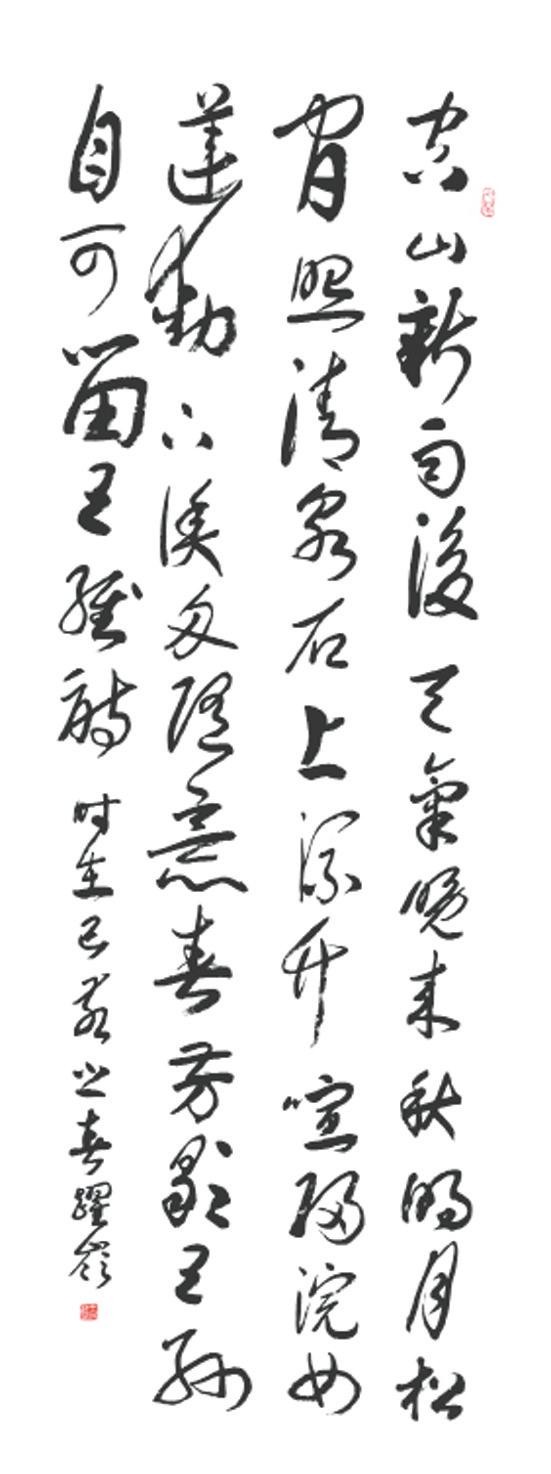 空山新雨後天氣晚來秋明月松
間照清泉石上流竹喧歸浣女
蓮動下漁舟隨意春芳歇王孫
自可留王維詩 时在己亥之春躍嶺